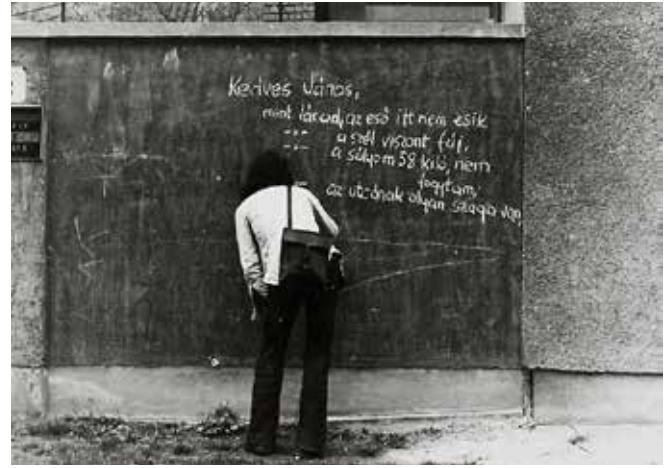 Kedves János,
mint látod, az eső itt nem esik
-"- a szél viszont fúj,
-"- a súlyom 58 kiló, nem
fogytam,
az utcának olyan szaga van